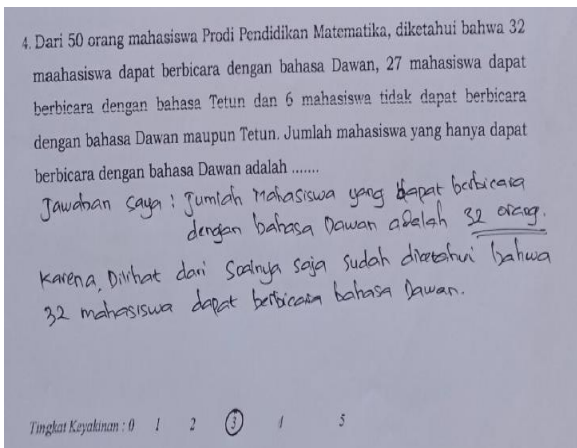 4. Dari 50 orang mahasiswa Prodi Pendidikan Matematika, diketahui bahwa 32
maahasiswa dapat berbicara dengan bahasa Dawan, 27 mahasiswa dapat
berbicara dengan bahasa Tetun dan 6 mahasiswa tidak dapat berbicara
dengan bahasa Dawan maupun Tetun. Jumlah mahasiswa yang hanya dapat
berbicara dengan bahasa Dawan adalah .......
Jawaban saya : Jumlah Mahasiswa yang dapat berbicara
dengan bahasa Dawan adalah 32 orang.
Karena, Dilihat dari Soalnya saja sudah diketahui bahwa
32 mahasiswa dapat berbicara bahasa Dawan.
Tingkat Keyakinan : 0 1 2 3 4 5